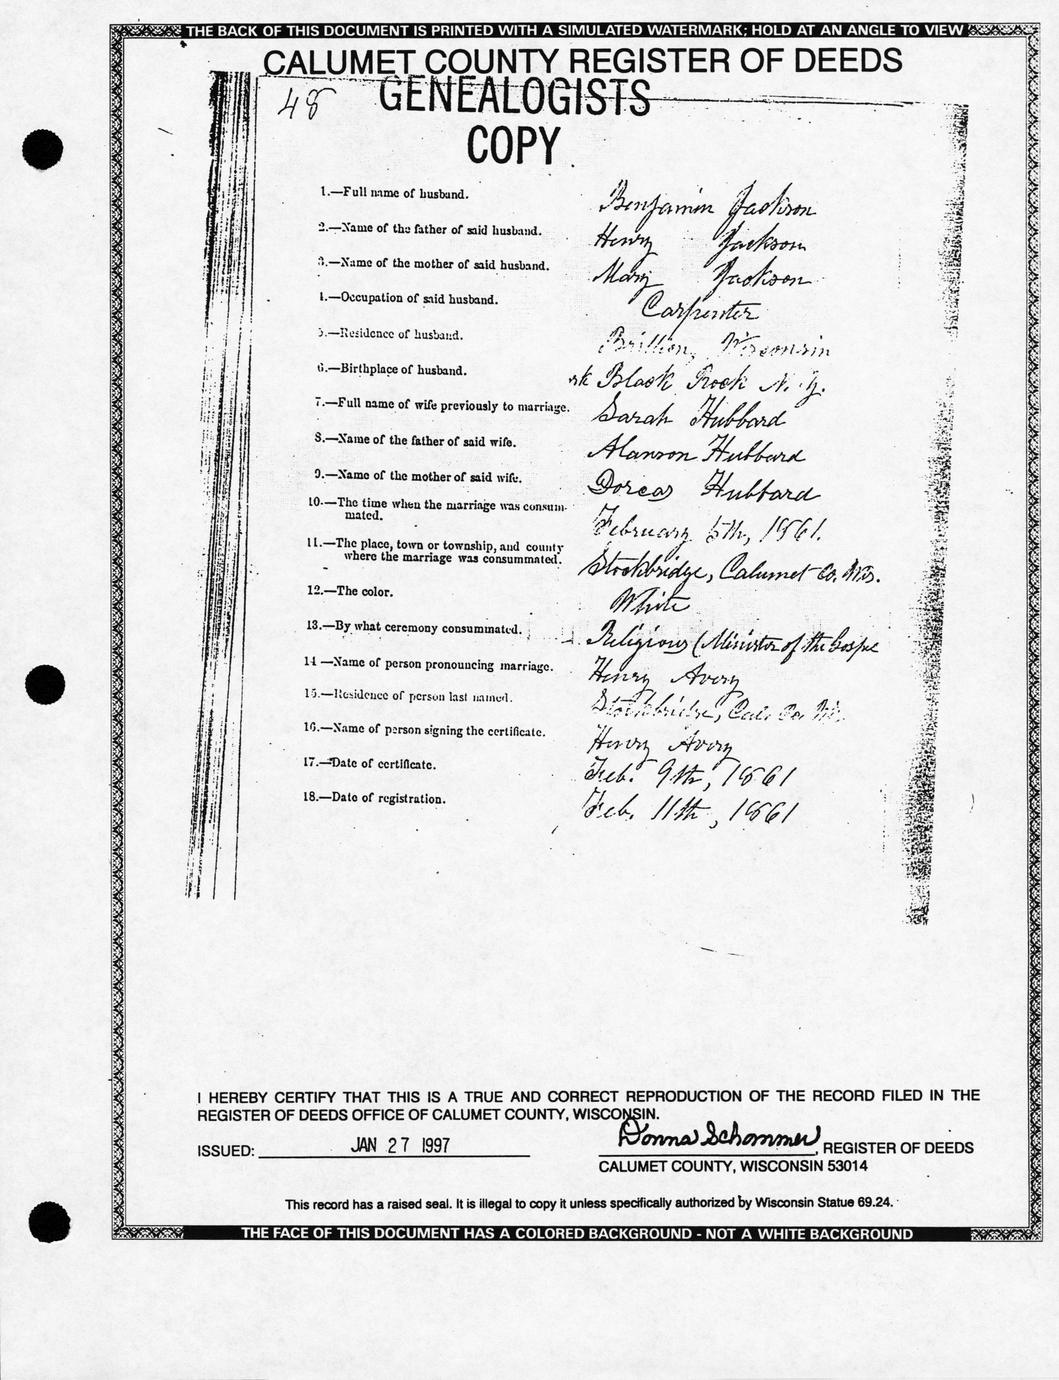 THE BACK OF THIS DOCUMENT IS PRINTED WITH A SIMULATED WATERMARK; HOLD AT AN ANGLE TO VIEW
CALUMET COUNTY REGISTER OF DEEDS
GENEALOGISTS
48
COPY
1.—Full name of husband. Benjamin Jackson
2.—Name of the father of said husband. Henry Jackson
3.—Name of the mother of said husband. Mary Jackson
4.—Occupation of said husband. Carpenter
5.—Residence of husband. Brillion, Wisconsin
6.—Birthplace of husband. Black Rock N. Y.
7.—Full name of wife previously to marriage. Sarah Hubbard
8.—Name of the father of said wife. Alanson Hubbard
9.—Name of the mother of said wife. Dorcas Hubbard
10.—The time when the marriage was consum-
mated. February 5th, 1861.
11.—The place, town or township, and county
where the marriage was consummated. Stockbridge, Calumet Co. Wis.
12.—The color. White
13.—By what ceremony consummated. Religious (Minister of the Gospe
14—Name of person pronouncing marriage. Henry Avery
15.—Residence of person last named. Stockbridge, Cal. Co. Wis.
16.—Name of person signing the certificate. Henry Avery
17.—Date of certificate. Feb. 9th, 1861
18.—Date of registration. Feb. 11th, 1861
I HEREBY CERTIFY THAT THIS IS A TRUE AND CORRECT REPRODUCTION OF THE RECORD FILED IN THE
REGISTER OF DEEDS OFFICE OF CALUMET COUNTY, WISCONSIN.
ISSUED: JAN 27 1997 Donna Schommer, REGISTER OF DEEDS
CALUMET COUNTY, WISCONSIN 53014
This record has a raised seal. It is illegal to copy it unless specifically authorized by Wisconsin Statue 69.24.
THE FACE OF THIS DOCUMENT HAS A COLORED BACKGROUND - NOT A WHITE BACKGROUND